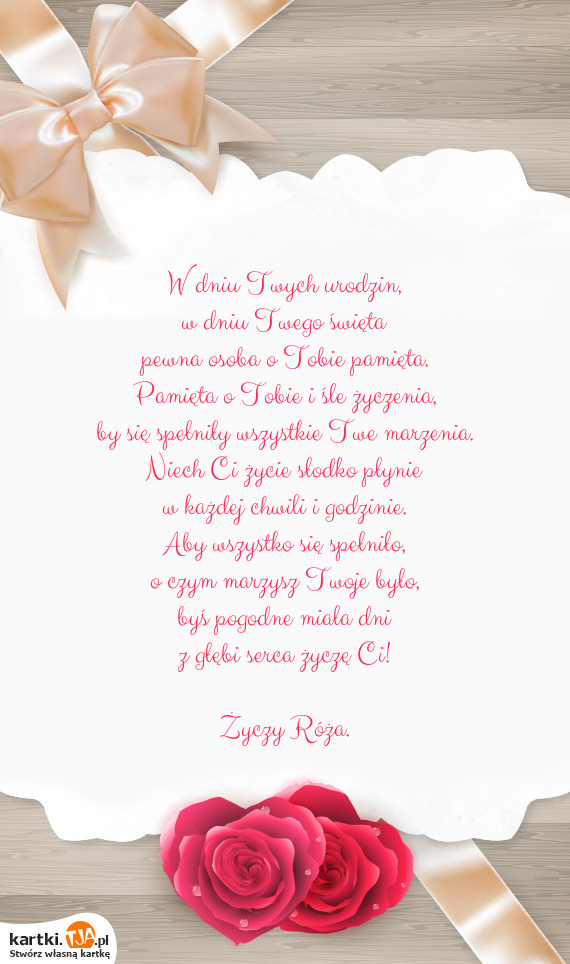 W dniu Twych urodzin,
w dniu Twego święta
pewna osoba o Tobie pamięta.
Pamięta o Tobie i śle życzenia,
by się spełniły wszystkie Twe marzenia.
Niech Ci życie słodko płynie
w każdej chwili i godzinie.
Aby wszystko się spełniło,
o czym marzysz Twoje było,
byś pogodne miała dni
z głębi serca życzę Ci!
Życzy Róża.
kartki.TJA.pl
Stwórz własną kartkę